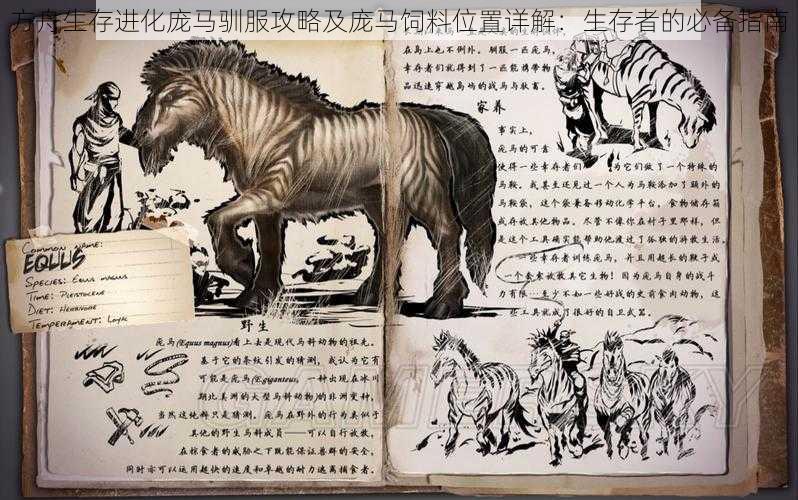 方舟生存进化庞马驯服攻略及庞马饲料位置详解：生存者的必备指南
在岛上也不例外。驯服一匹庞马，
幸存者们就得到了一匹能携带物
品迅速穿越岛屿的战马与驮畜。
家养
事实上，
庞马的可靠
使得一些幸存者们 为它们做了一个特殊的
马鞍。我甚至还见过一个人为马鞍添加了额外的
马鞍袋，这个袋兼备移动化学平台，食物储存箱
或存放其他物品。尽管不像你在村子里那样，但
是这个工具确实能帮助他渡过了孤独的游牧生活。
一些幸存者训练庞马，并且用超长的鞭子成
一个套索放救其它生物！因为庞马自身的战斗
力有限 至少不如一些好战的史前食肉动物，这
些工具就成了很好的自卫武器。
Common Name:
EQUUS
Species: Equus magnus
Time: Pleistocene
Diet: Herbivore
Temperament: Loyal
野生
庞马(Equus magnus)看上去是现代马科动物的祖先。
基于它的条纹引发的猜测，我认为它有
可能是庞马(E.giganteus， 一种出现在冰川
期北美洲的大型马科动物)的非洲变种，
当然这纯粹只是猜测。庞马在野外的行为类似于
其他的野生马科成员——可以自行放牧，
在掠食者的威胁之下既能保证兽群的安全，
同时亦可以运用超快的速度和卓越的耐力逃离捕食者。